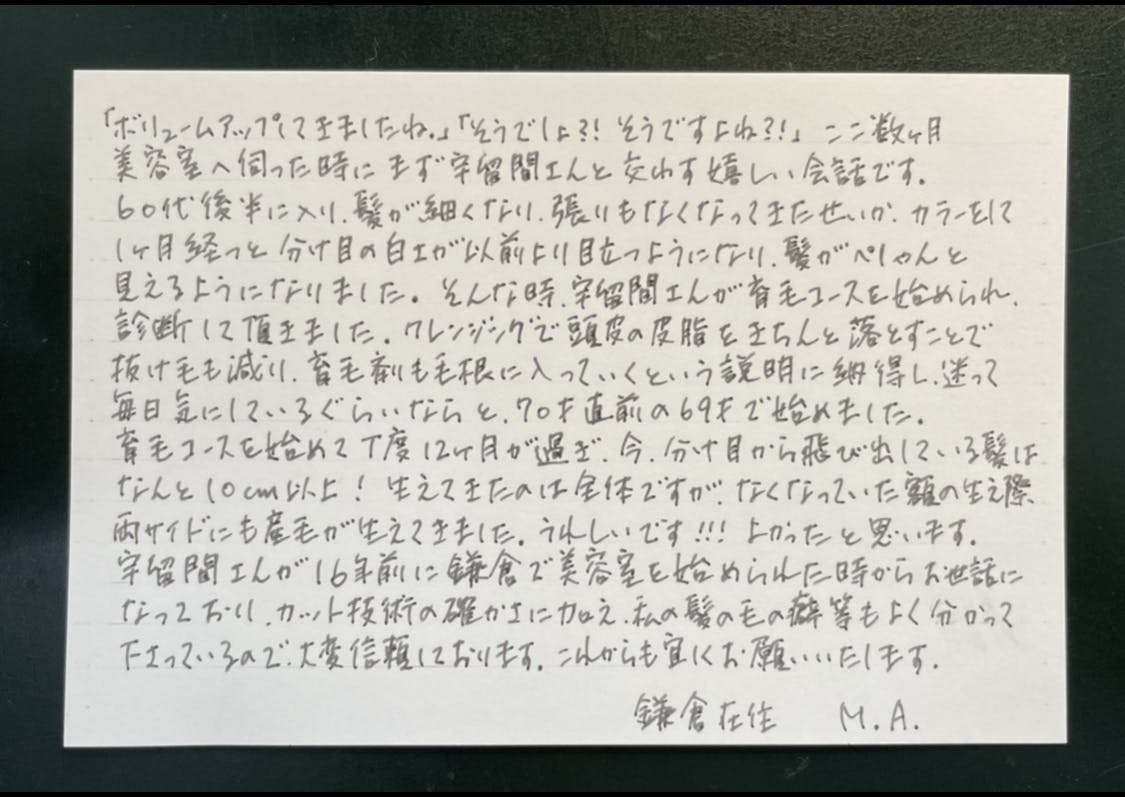 「ボリュームアップしてきましたね。」「そうでしょ?! そうですよね?!」ここ数ヶ月
美容室へ伺った時にまず宇留間さんと交わす嬉しい会話です。
60代後半に入り、髪が細くなり、張りもなくなってきたせいか、カラーをして
1ヶ月経つと分け目の白さが以前より目立つようになり、髪がぺしゃんと
見えるようになりました。そんな時、宇留間さんが育毛コースを始められ、
診断して頂きました。クレンジングで頭皮の皮脂をきちんと落とすことで
抜け毛も減り、育毛剤も毛根に入っていくという説明に納得し、迷って
毎日気にしているぐらいならと、70才直前の69才で始めました。
育毛コースを始めて丁度12ヶ月が過ぎ、今、分け目から飛び出している髪は
なんと10cm以上! 生えてきたのは全体ですが、なくなっていた額の生え際
両サイドにも産毛が生えてきました。うれしいです!!! よかったと思います。
宇留間さんが16年前に鎌倉で美容室を始められた時からお世話に
なっており、カット技術の確かさに加え、私の髪の毛の癖等もよく分かって
下さっているので、大変信頼しております。これからも宜しくお願いいたします。
鎌倉在住 M.A.